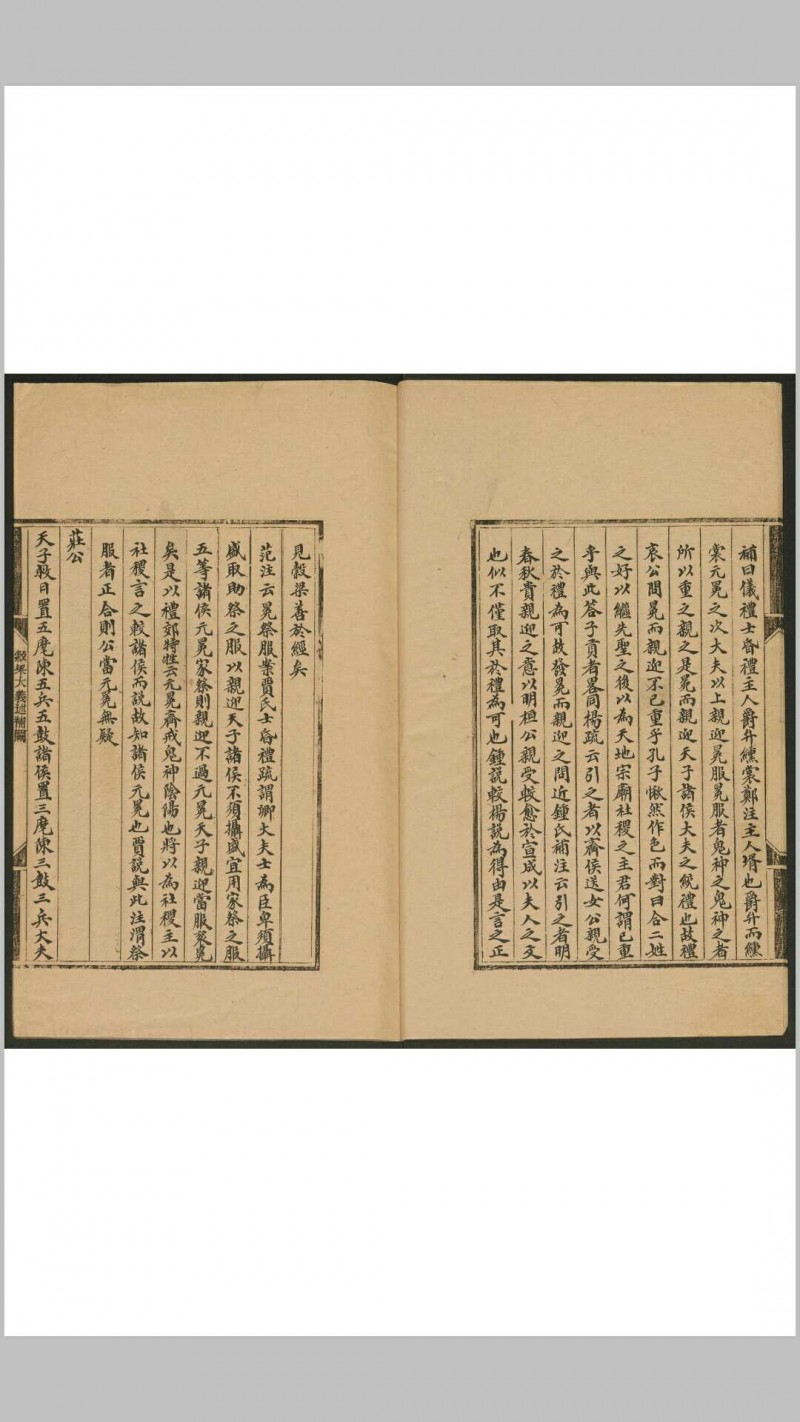 補曰儀禮士昏禮主人爵弁纁裳鄭注主人壻也爵弁而纁
裳元冕之次大夫以上親迎冕服冕服者鬼神之鬼神之者
所以重之親之是冕而親迎天子諸侯大夫之統禮也故禮
哀公問冕而親迎不已重乎孔子愀然作色而對曰合二姓
之好以繼先聖之後以為天地宗廟社稷之主君何謂已重
乎與此荅子貢者畧同楊疏云引之者以齊侯送女公親受
之於禮為可故發冕而親迎之問近鍾氏補注云引之者明
春秋貴親迎之意以明桓公親受較愈於宣成以夫人之
也似不僅取其於禮為可也鍾說較楊說為得由是言之正
見穀梁善於經矣
范注云冕祭服業賈氏士昏禮疏謂卿大夫士為臣卑須攝
盛取助祭之服以親迎天子諸侯不須攝盛宜用家祭之服
五等諸侯元冕家祭則親迎不過元冕天子親迎當服衮冕
矣是以禮郊特牲云元冕齋戒鬼神陰陽也將以為社稷主以
社稷言之較諸侯而說故知諸侯元冕也賈說與此注渭祭
服者正合則公當元冕無疑
莊公
天子救日置五麾陳五兵五鼓諸侯置三麾陳三鼓三兵大夫
穀梁大義述補闕